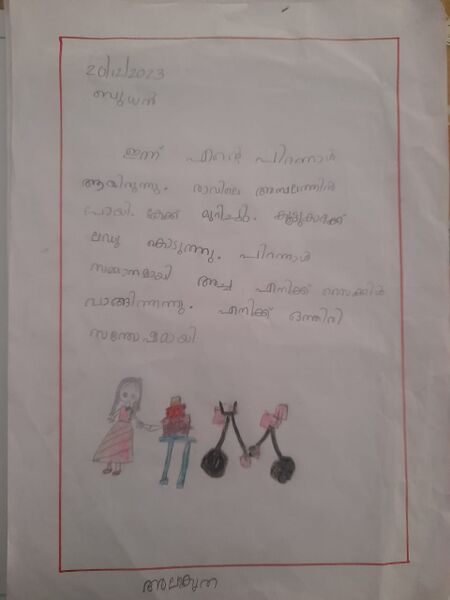 20/12/2023
ബുധൻ
ഇന്ന് എന്റെ പിറന്നാൾ
ആയിരുന്നു. രാവിലെ അമ്പലത്തിൽ
പോയി. കേക്ക് മുറിച്ചു. കൂട്ടുകാർക്ക്
ലഡു കൊടുത്തു. പിറന്നാൾ
സമ്മാനമായി അച്ഛ എനിക്ക് സൈക്കിൾ
വാങ്ങിത്തന്നു. എനിക്ക് ഒത്തിരി
സന്തോഷമായി